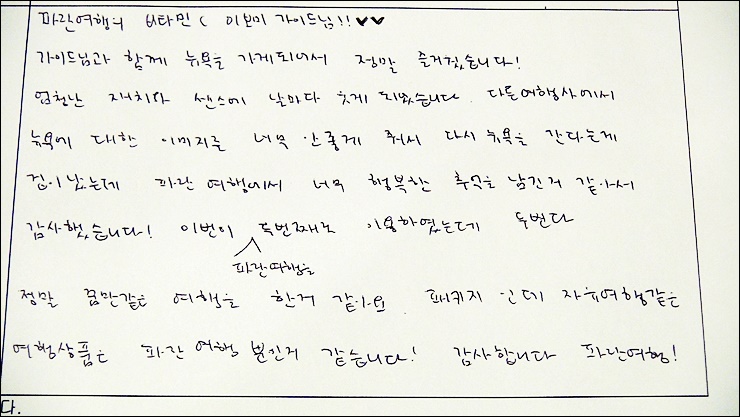 파란여행의 비타민 ( 이보미 가이드님!! ♥♥
가이드님과 함께 뉴욕을 가게되어서 정말 즐거웠습니다!
엄청난 재치와 센스에 날마다 웃게 되었습니다 다른여행사에서
뉴욕에 대한 이미지를 너무 안좋게 줘서 다시 뉴욕을 간다는게
겁이 났는데 파란 여행에서 너무 행복한 추억을 남긴거 같아서
감사했습니다! 이번이 두번째로 이용하였는데 두번다
파란여행을
정말 꿈만같은 여행을 한거 같아요 패키지 인데 자유여행같은
여행상품은 파란 여행 뿐인거 같습니다! 감사합니다 파란여행!
다.